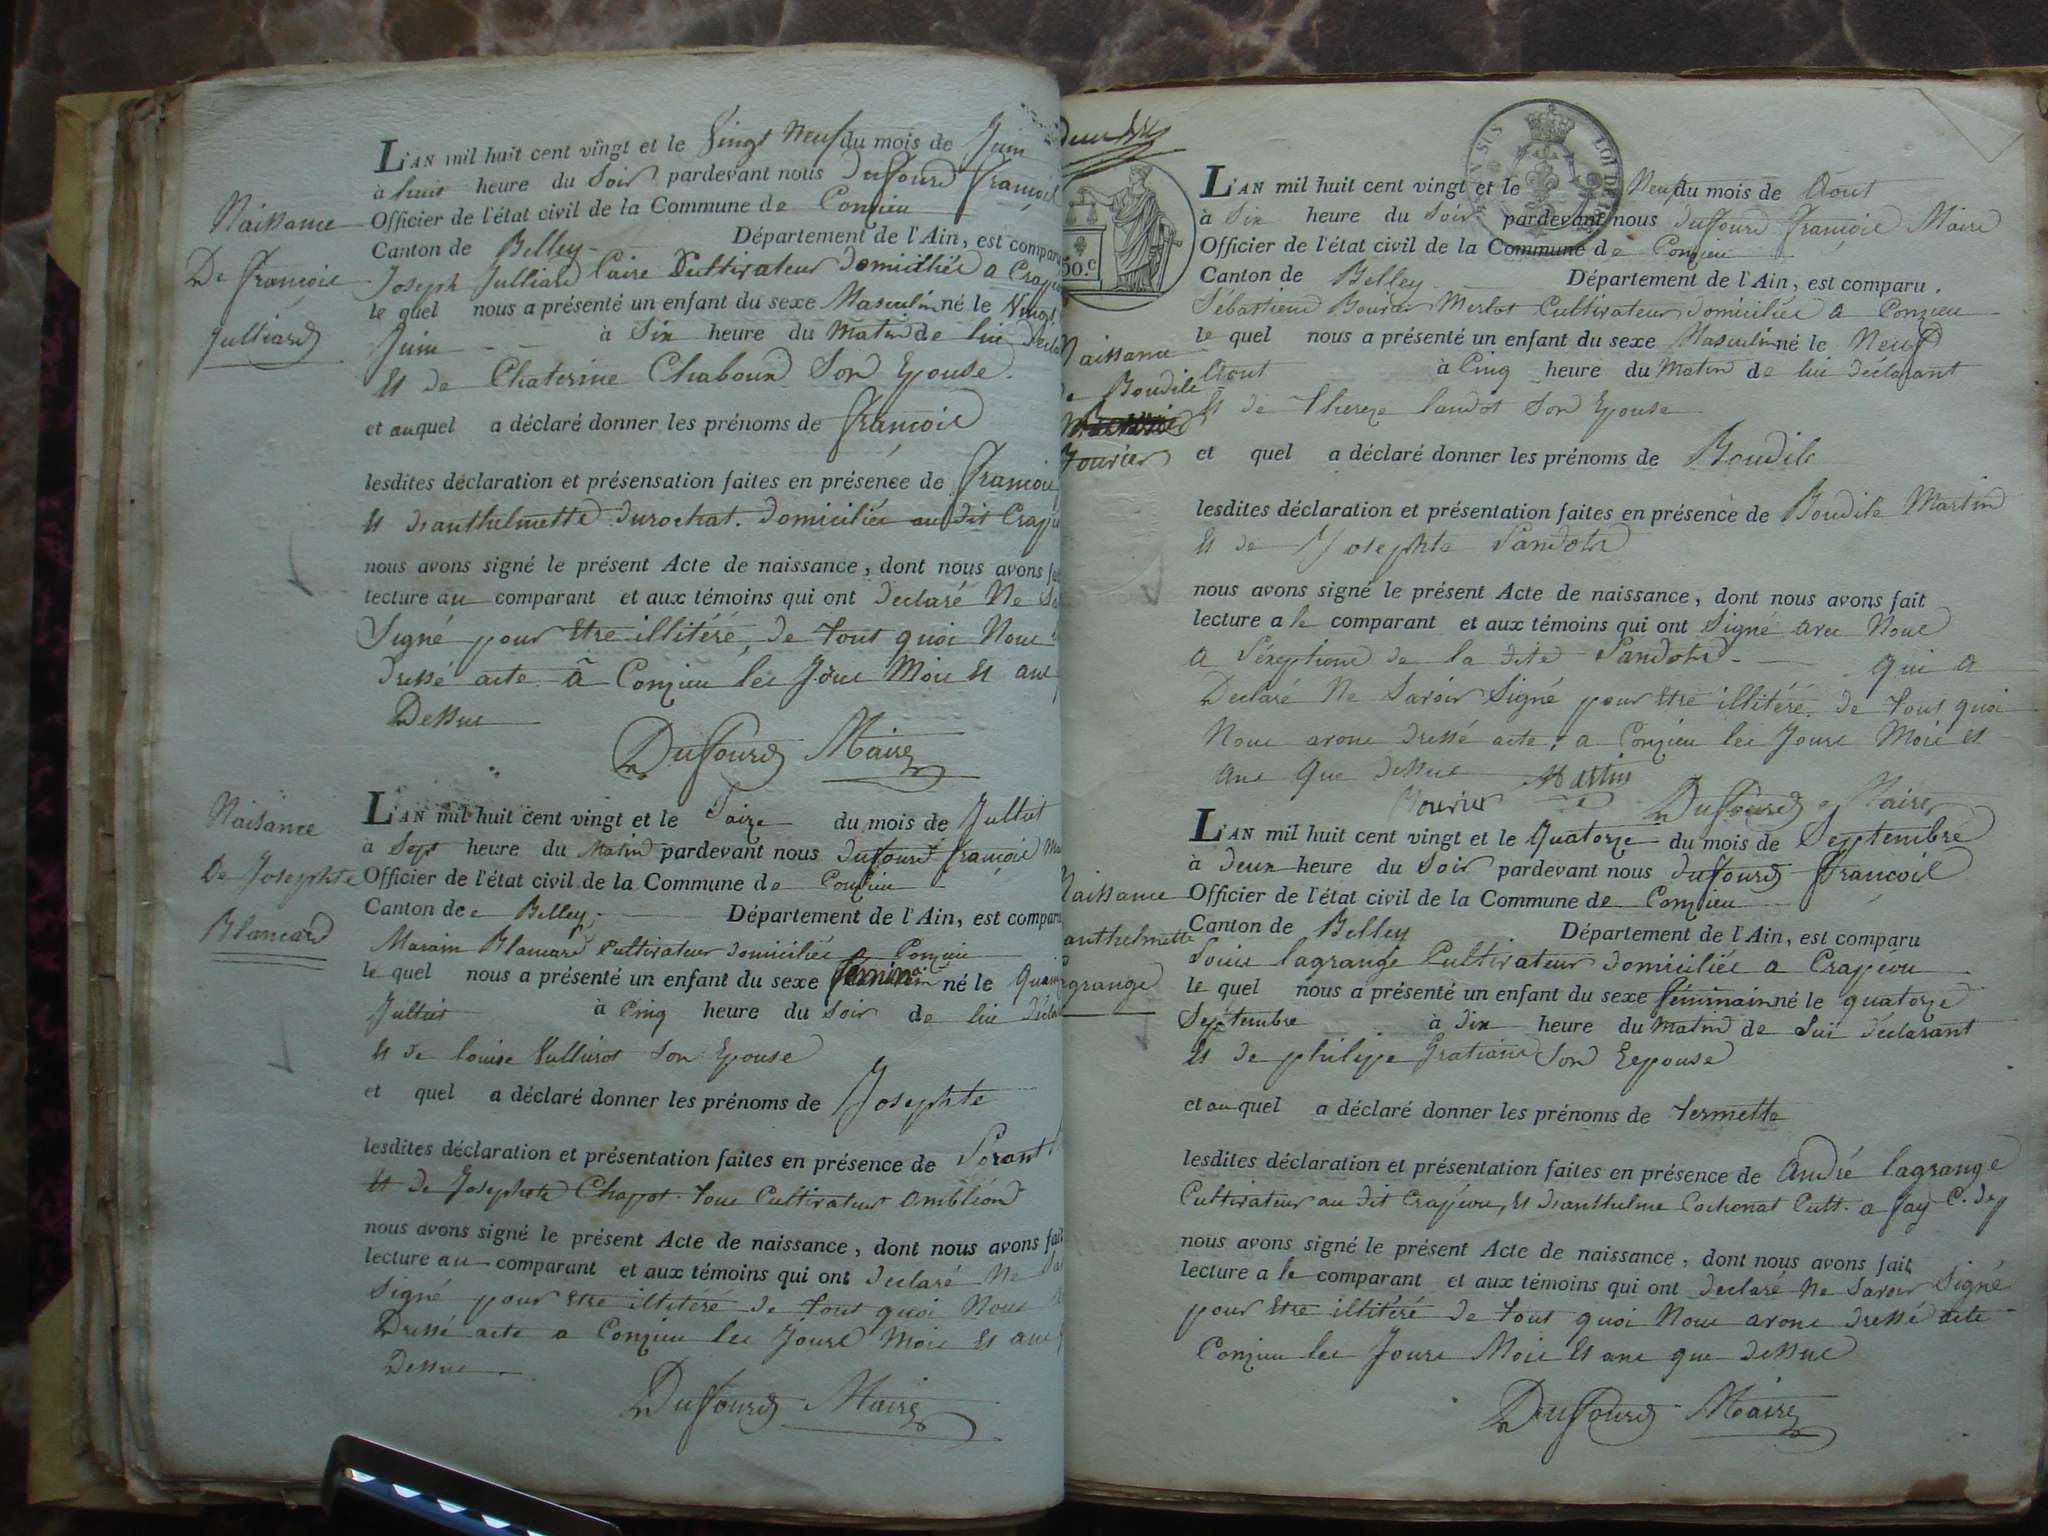 Naissance
De françoie
Julliard
L'AN mil huit cent vingt et le Vingt Neuf du mois de Juin
à huit heure du Soir pardevant nous Duffourd françoie
Officier de l'état civil de la Commune de Conzieu
Canton de Belley Département de l'Ain, est compar
Joseph Julliard Cultivateur domiciliée a Crapéou
le quel nous a présenté un enfant du sexe Masculin né le Vingt
Juin à Six heure du Matin de lui
Et de Chaterine Chaboud Son Epouse.
et auquel a déclaré donner les prénoms de françoie
lesdites déclaration et présensation faites en présence de françoie
Et d'anthelmette durochat. domiciliée au dit
nous avons signé le présent Acte de naissance, dont nous avons
lecture au comparant et aux témoins qui ont Declaré Ne
Signé pour Etre illitéré, de tout quoi Noue
dressé acte à Conzieu lee Joue Moie Et ane
Dessue
Duffourd Maire
Naisance
De Josephte
Blancard
L'AN mil huit cent vingt et le Saize du mois de Jullict
à Sept heure du Matin pardevant nous Duffourd françoie
Officier de l'état civil de la Commune de Conzieu
Canton de Belley Département de l'Ain, est compar
Marain Blancard Cultivateur domiciliée a Conzieu
le quel nous a présenté un enfant du sexe féminin né le
Jullict à Cinq heure du Soir de lui
Et de louise Son Epouse
et quel a déclaré donner les prénoms de Josephte
lesdites déclaration et présentation faites en présence de
Et de Josephte Chapot. toue Cultivateur
nous avons signé le présent Acte de naissance, dont nous avons fait
lecture au comparant et aux témoins qui ont declaré Ne
Signé pour Etre illitéré de tout quoi Noue
Dressé acte a Conzieu lee Joure Moie Et ane
Dessue
Duffourd Maire
50.c
LOI DE
Naissance
de Boudile
Bourier
L'AN mil huit cent vingt et le Neuf du mois de Aout
à Six heure du Soir pardevant nous Duffourd françoie Maire
Officier de l'état civil de la Commune de Conzieu
Canton de Belley Département de l'Ain, est comparu
Sébastiene Bourier Merlot Cultivateur domiciliée a Conzieu
le quel nous a présenté un enfant du sexe Masculin né le Neuf
Aout à Cinq heure du Matin de lui déclarant
Et de Thereze landot Son Epouse
et quel a déclaré donner les prénoms de Boudile
lesdites déclaration et présentation faites en présence de Boudile Martin
Et de Josephte Landote
nous avons signé le présent Acte de naissance, dont nous avons fait
lecture a le comparant et aux témoins qui ont Signé avec Noue
a l'éxeptione de la dite Landote qui a
Declaré Ne Savoir Signé pour Etre illitéré. de tout quoi
Noue avone dressé acte, a Conzieu lee Joure Moie Et
ane que dessue Martin
Bourier Duffourd Maire
Naissance
anthelmette
Lagrange
L'AN mil huit cent vingt et le Quatorze du mois de Septembre
à deux heure du Soir pardevant nous Duffourd françoie
Officier de l'état civil de la Commune de Conzieu
Canton de Belley Département de l'Ain, est comparu
Louie lagrange Cultivateur domiciliée a Crapéou
le quel nous a présenté un enfant du sexe féminain né le quatorze
Septembre à dix heure du Matin de Lui déclarant
Et de philippe Gratiane Son Eepouse
et auquel a déclaré donner les prénoms de termette
lesdites déclaration et présentation faites en présence de André lagrange
Cultivateur au dit Crapéou, Et d'anthelme Cochonat Cult. a fay C. de
nous avons signé le présent Acte de naissance, dont nous avons fait
lecture a le comparant et aux témoins qui ont declaré Ne Savoir Signé
pour Etre illitéré de tout quoi Noue avone dressé acte
Conzieu lee Joure Moie Et ane que dessue
Duffourd Maire